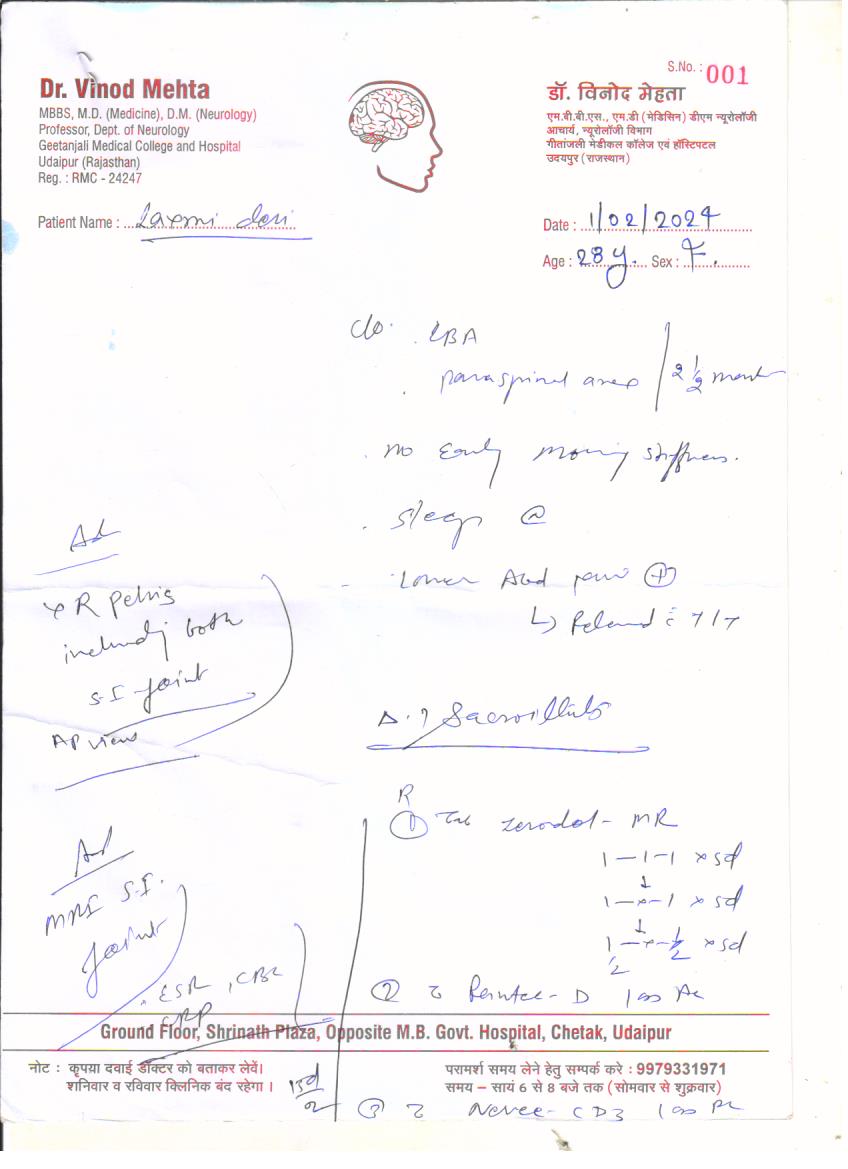 S.No. : 001
Dr. Vinod Mehta
MBBS, M.D. (Medicine), D.M. (Neurology)
Professor, Dept. of Neurology
Geetanjali Medical College and Hospital
Udaipur (Rajasthan)
Reg. : RMC - 24247
डॉ. विनोद मेहता
एम.बी.बी.एस., एम.डी (मेडिसिन) डीएम न्यूरोलॉजी
आचार्य, न्यूरोलॉजी विभाग
गीतांजली मेडीकल कॉलेज एवं हॉस्पिटल
उदयपुर (राजस्थान)
Patient Name : Laxmi devi
Date : 1/02/2024
Age : 28 y. Sex : F.
c/o. LBA
paraspinal area / 2 1/2 month
no early morning stiffness.
sleep
Lower Abd pain +
7/7
Ad
X R pelvis
including both
S.I joint
AP view
Δ. ? Sacroiliitis
Ad
MRI S.I.
joint
ESR, CBC
CRP
R
1 Tab Zerodol - MR
1-1-1 x 5d
↓
1-x-1 x 5d
↓
1/2-x-1/2 x 5d
2 - D
3 - CD3
Ground Floor, Shrinath Plaza, Opposite M.B. Govt. Hospital, Chetak, Udaipur
नोट : कृपया दवाई डॉक्टर को बताकर लेवें।
शनिवार व रविवार क्लिनिक बंद रहेगा।
परामर्श समय लेने हेतु सम्पर्क करे : 9979331971
समय – सायं 6 से 8 बजे तक (सोमवार से शुक्रवार)